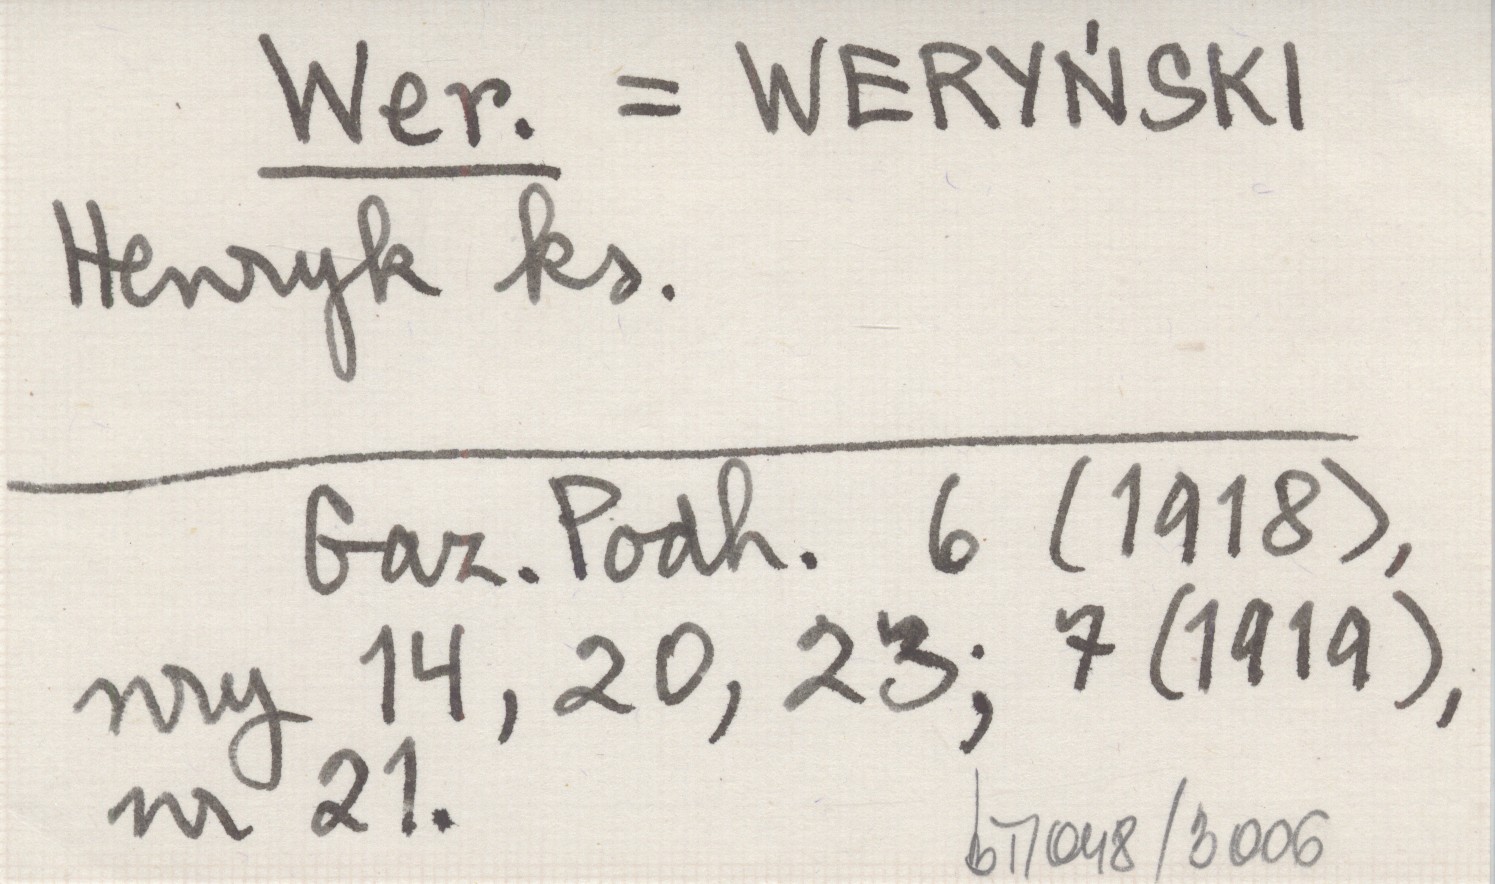 Wer. = WERYŃSKI
Henryk ks.
Gaz. Podh. 6 (1918),
nry 14, 20, 23; 7 (1919),
nr 21.
/3006